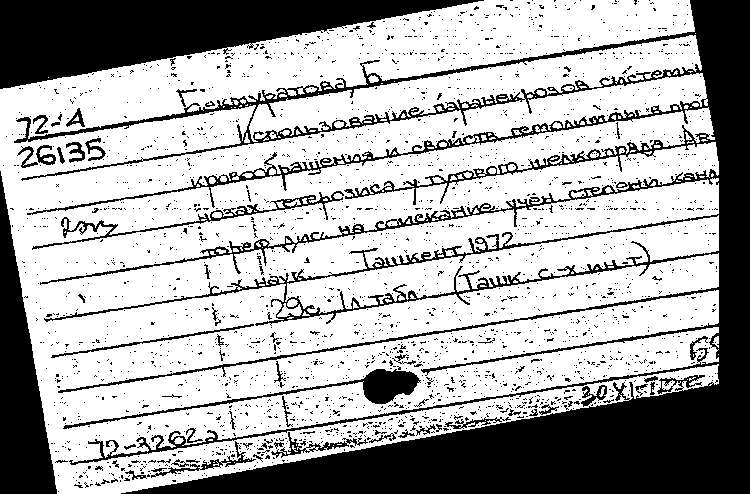 72-А
26135
Бекмуратова, Б.
Использование паранекрозов системы
кровообращения и свойств гемолимфы в прог
нозах гетерозиса у тутового шелкопряда. Ав-
тореф. дис. на соискание учён степени канд
с.-х наук. Ташкент, 1972.
29с; 1л. табл. (Ташк. с.-х ин-т)
72-32622